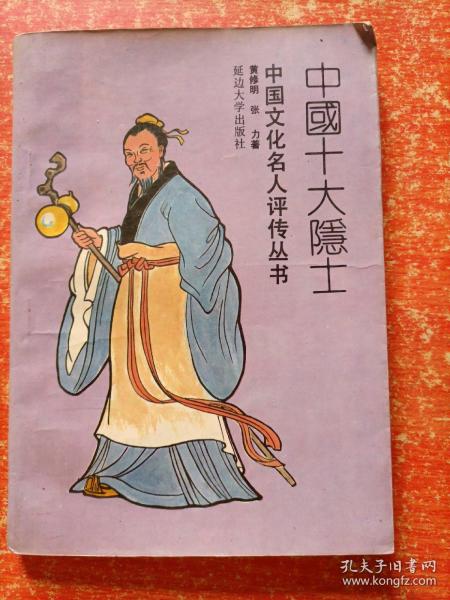 中國十大隱士
中国文化名人评传丛书
黄修明 张力著
延边大学出版社
孔夫子旧书网
www.kongfz.com